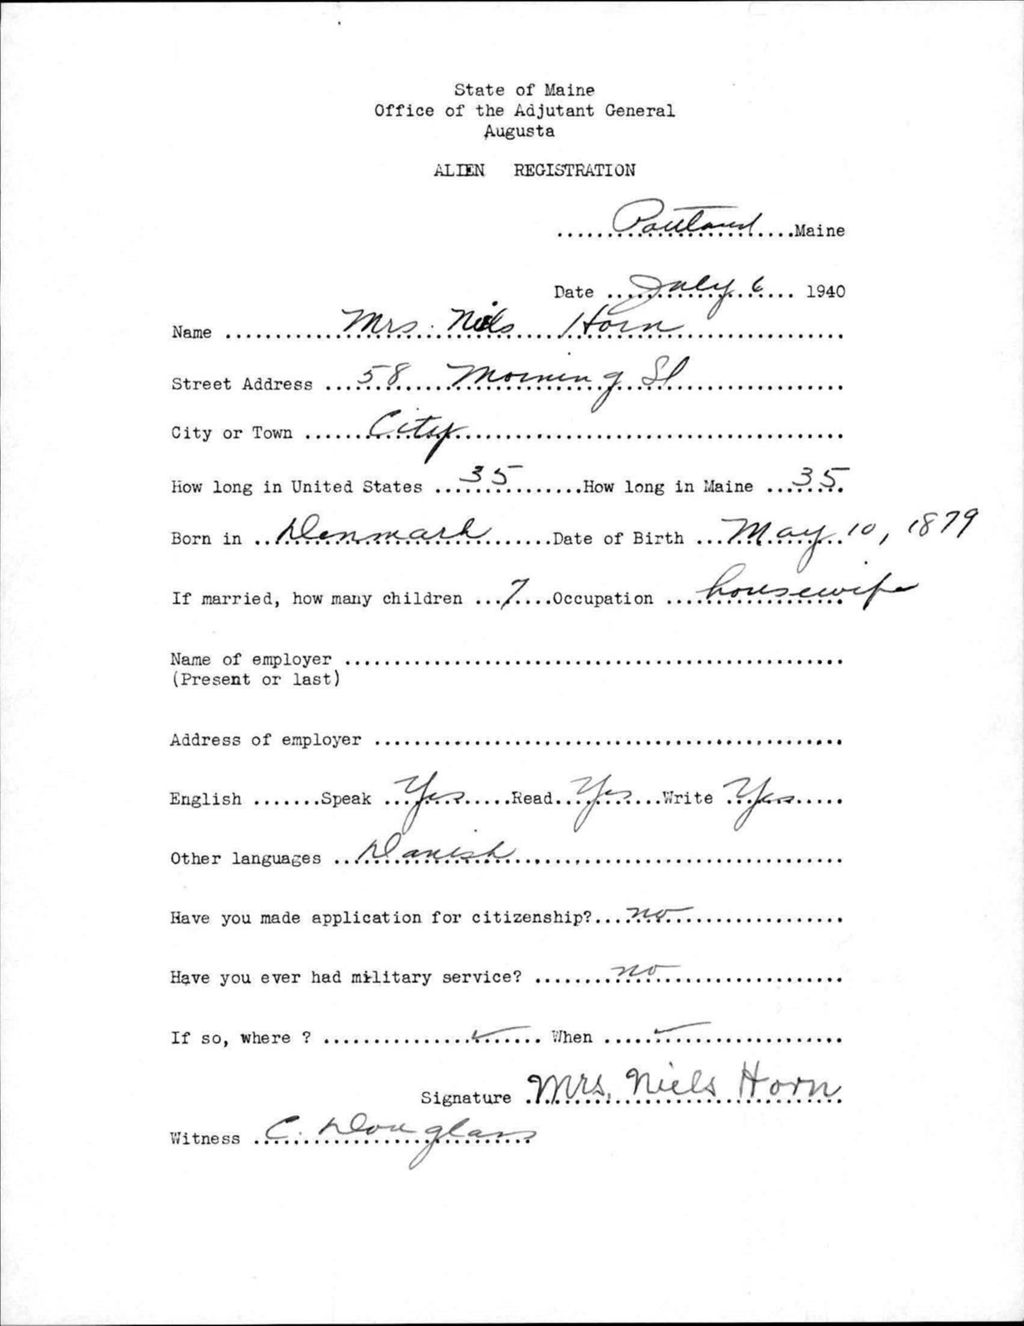 State of Maine
Office of the Adjutant General
Augusta
ALIEN REGISTRATION
......Portland....Maine
Date ...July 6.... 1940
Name ............Mrs. Niels Horn................
Street Address ...58 Morning St................
City or Town .......City........................................
How long in United States ...35........How long in Maine ...35.
Born in ..Denmark.......Date of Birth ...May 10, 1879
If married, how many children ...7....Occupation ....housewife
Name of employer ..................................................
(Present or last)
Address of employer ...............................................
English .......Speak ...Yes.....Read...Yes...Write ..Yes.....
Other languages ...Danish.................................
Have you made application for citizenship?...no................
Have you ever had military service? ........no.................
If so, where ? ...............✓...... When .....✓................
Signature .Mrs. Niels Horn
Witness .C. Douglass